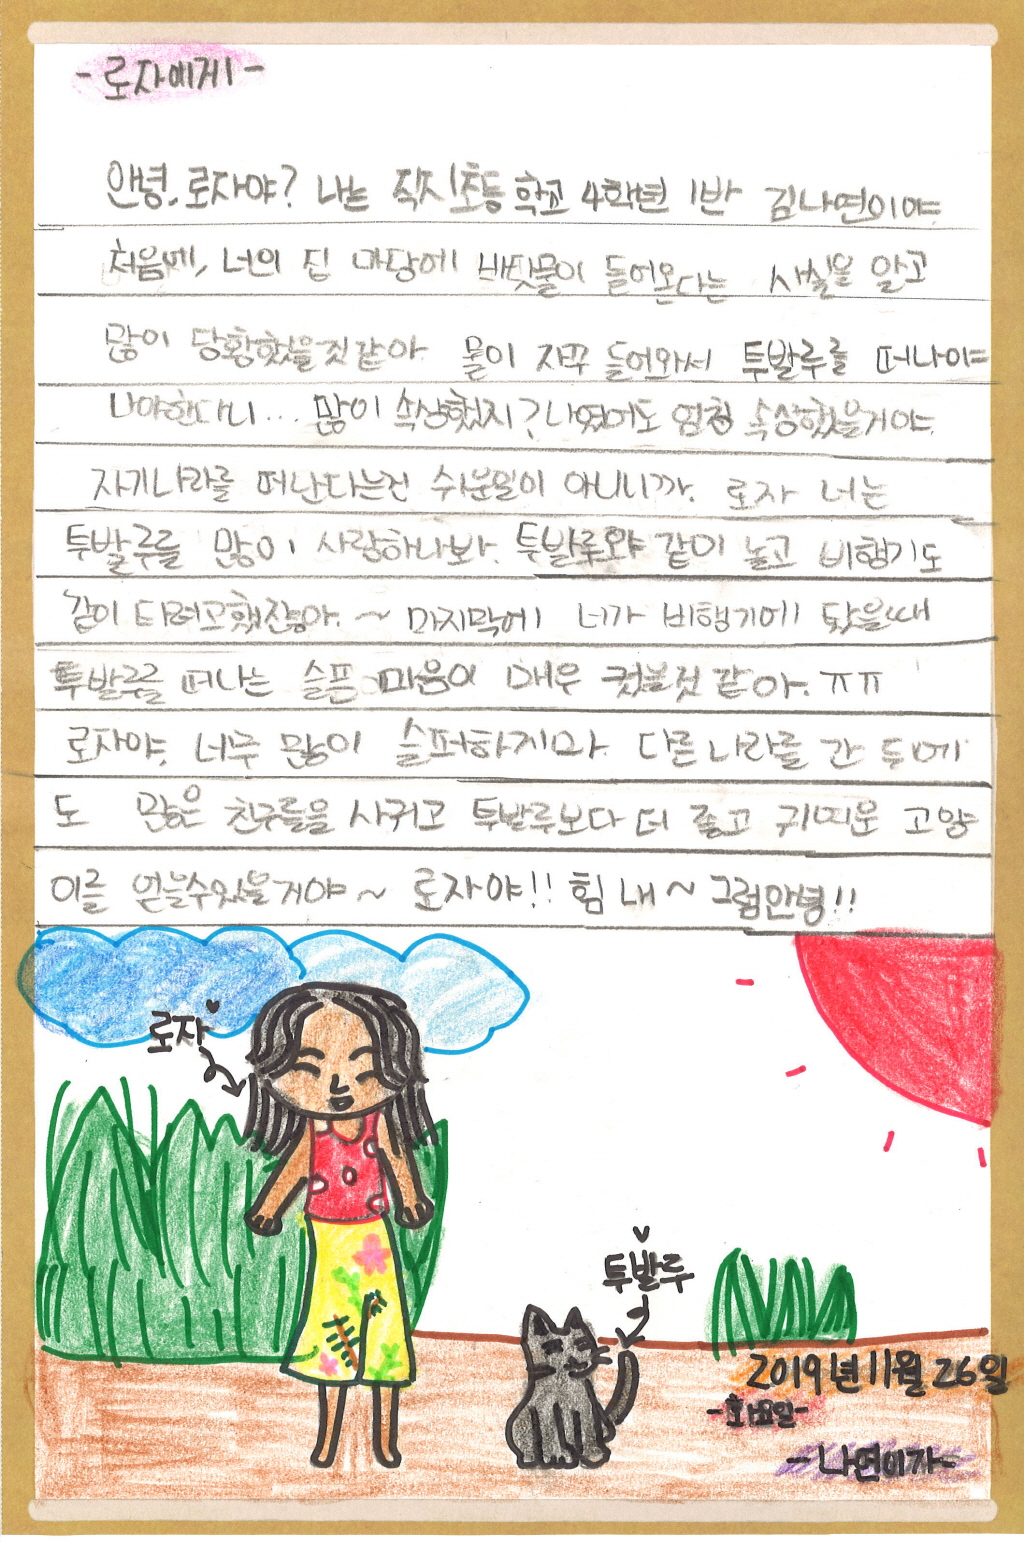 -로자에게-
안녕, 로자야? 나는 직지초등학교 4학년 1반 김나연이야.
처음에, 너의 집 마당에 바닷물이 들어온다는 사실을 알고
많이 당황했을것같아. 물이 자꾸 들어와서 투발루를 떠나야
나야한다니... 많이 속상했지? 나였어도 엄청 속상했을거야.
자기나라를 떠난다는건 쉬운일이 아니니까. 로자 너는
투발루를 많이 사랑하나봐. 투발루와 같이 놀고 비행기도
같이 타려고했잖아.~ 마지막에 너가 비행기에 탔을때
투발루를 떠나는 슬픈 마음이 매우 컸을것 같아. ㅠㅠ
로자야, 너무 많이 슬퍼하지마. 다른나라를 간 뒤에
도 많은 친구들을 사귀고 투발루보다 더 좋고 귀여운 고양
이를 얻을수있을거야~ 로자야!! 힘내~ 그럼안녕!!
로자
투발루
2019년 11월 26일
-화요일-
-나연이가-